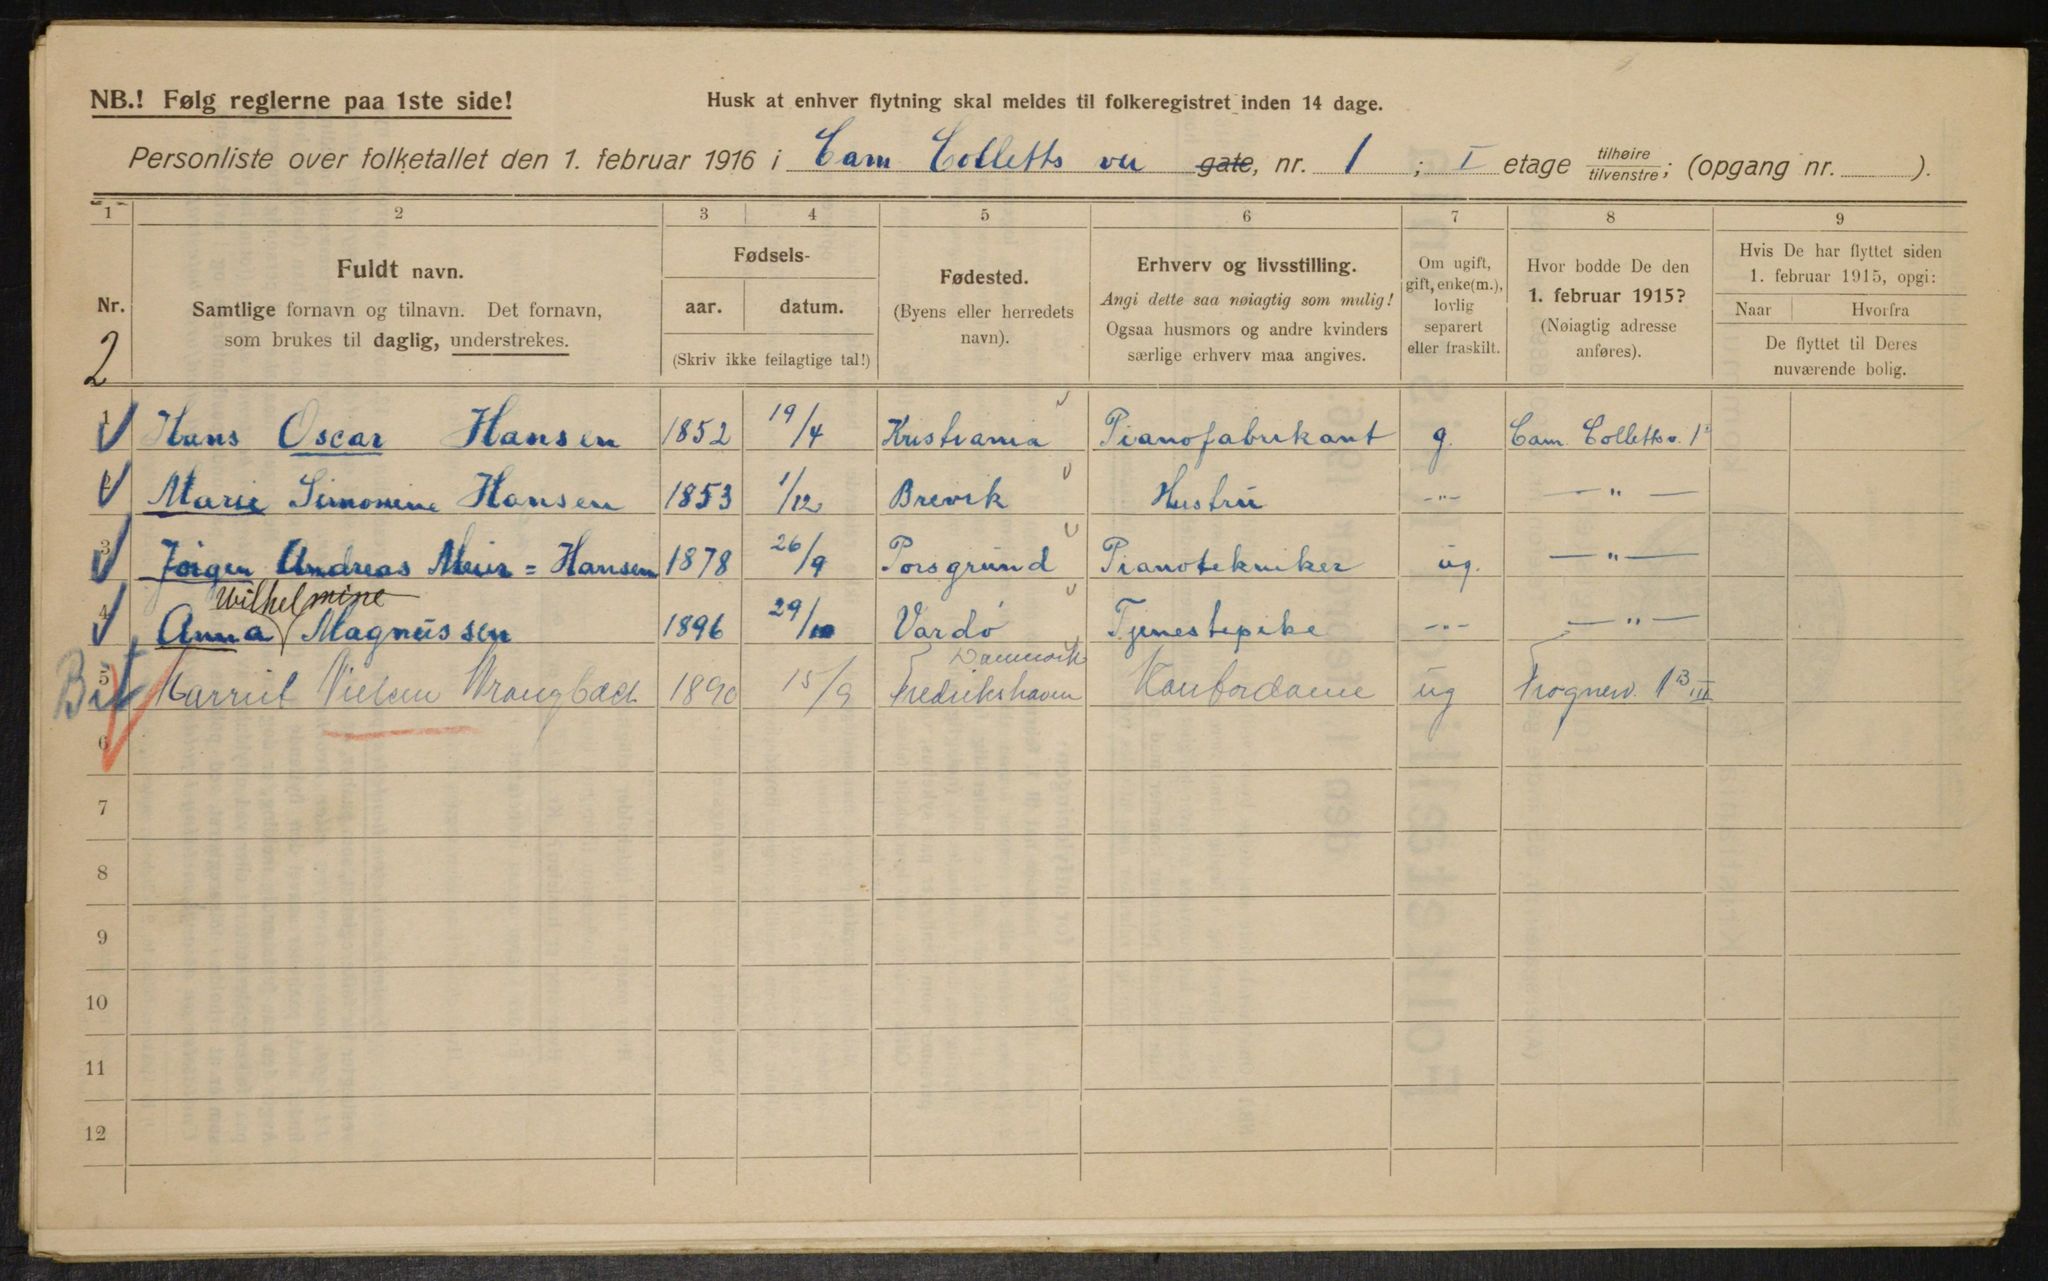 NB.! Følg reglerne paa 1ste side!
Husk at enhver flytning skal meldes til folkeregistret inden 14 dage.
Personliste over folketallet den 1. februar 1916 i Cam Colletts vei gate, nr. 1 ; I etage tilhøire tilvenstre; (opgang nr. ).
1 2 3 4 5 6 7 8 9
Nr.
2
Fuldt navn.
Samtlige fornavn og tilnavn. Det fornavn,
som brukes til daglig, understrekes.
Fødsels-
aar. datum.
(Skriv ikke feilagtige tal!)
Fødested.
(Byens eller herredets
navn).
Erhverv og livsstilling.
Angi dette saa nøiagtig som mulig!
Ogsaa husmors og andre kvinders
særlige erhverv maa angives.
Om ugift,
gift, enke(m.),
lovlig
separert
eller fraskilt.
Hvor bodde De den
1. februar 1915?
(Nøiagtig adresse
anføres).
Hvis De har flyttet siden
1. februar 1915, opgi:
Naar Hvorfra
De flyttet til Deres
nuværende bolig.
1 Hans Oscar Hansen 1852 19/4 Kristiania Pianofabrikant g. Cam. Colletts v. 1
2 Marie Simonine Hansen 1853 1/12 Brevik Hustru -"- — " —
3 Jørgen Andreas Meier = Hansen 1878 26/9 Porsgrund Pianotekniker ug. — " —
Wilhelmine
4 Anna Magnussen 1896 29/10 Vardø Tjenestepike -"- — " —
Danmark
5 Harriet Nielsen 1890 15/9 Fredrikshavn Kontordame ug Frognerv. 1B III
6
7
8
9
10
11
12